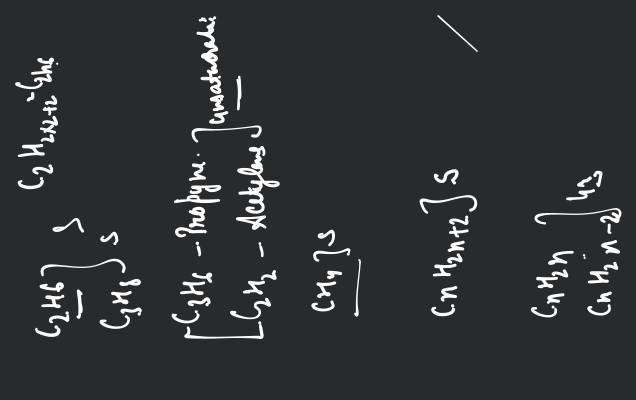 C2H6 ] S C2H2x2+2 = C2H6
C3H8 ] S
[ C3H6 - Propyne. ] unsaturated
[ C2H2 - Acetylene ]
CH4 ] S
CnH2n+2 ] S
CnH2n ] us
CnH2n-2